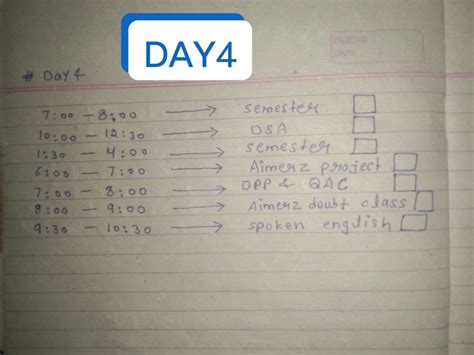 DAY4
# DAY 4
7:00 – 8:00 → semester
10:00 – 12:30 → DSA
1:30 – 4:00 → semester
6:00 – 7:00 → Aimerz project
7:00 – 8:00 → DPP & QAC
8:00 – 9:00 → Aimerz doubt class
9:30 – 10:30 → spoken english